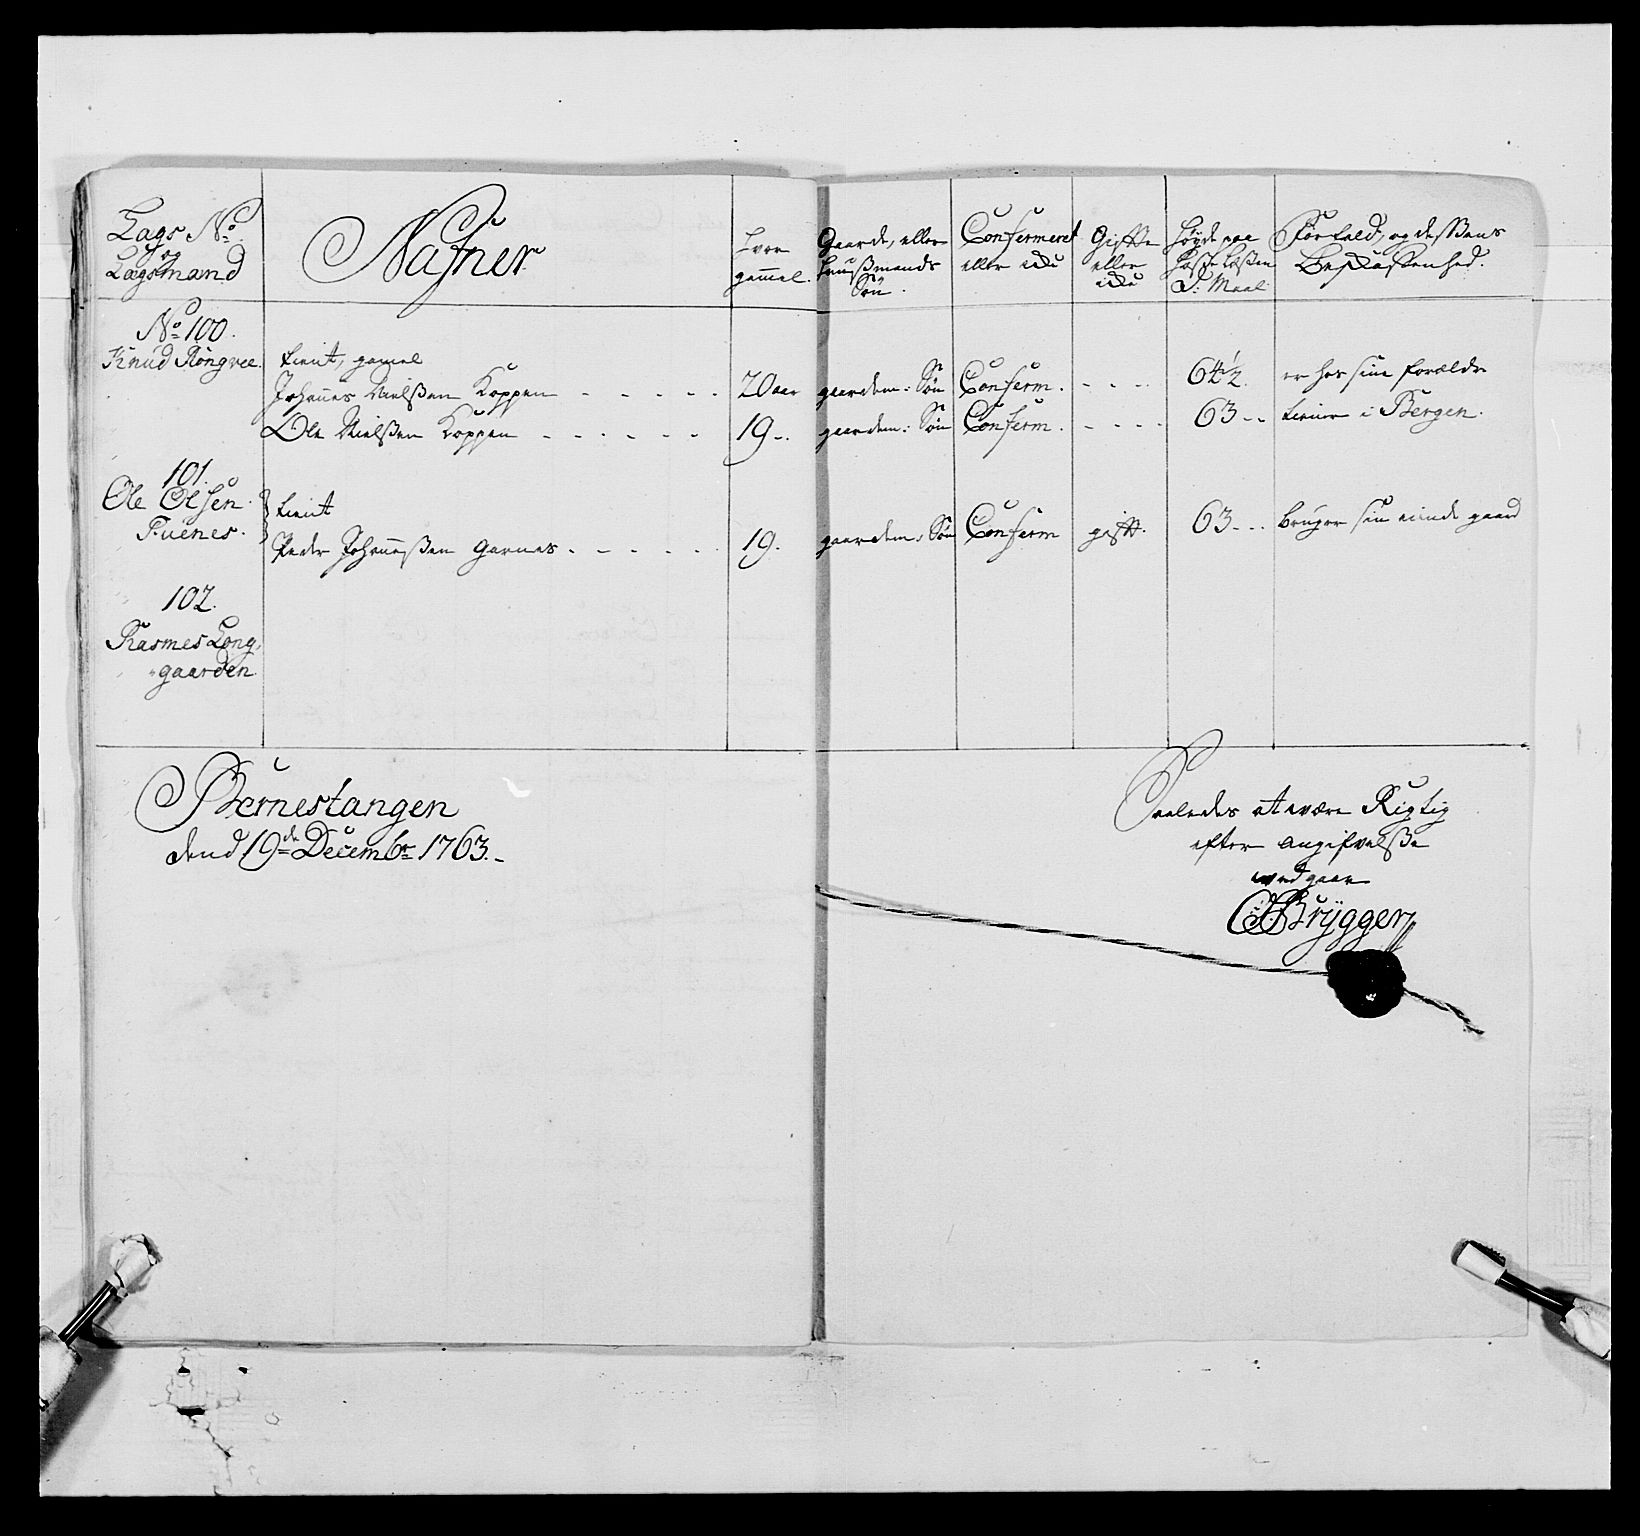 Lags No og Lægsmand
Nafner
hvor gammel.
Gaarde, eller huusmands Søn.
Confermeret eller icke
Gifte eller icke
Høyde paa Hosse Læsten D: Maal
Forfald, og desssens Beskaffenhed.
No 100.
Knud Röngvee.
tient, gamel
Johannes Nielsen Koppen - - - - - 20 aar gaardem: Søn Conferm. - - - 64 1/2. er hos sine forældre
Ole Nielsen Koppen - - - - - - 19 -. gaardem: Søn Conferm. - - - - 63 - - tiener i Bergen.
101.
Ole Olsen Fuenes.
tient
Peder Johannessen Garnes. - - - - - 19. gaardem: Søn Conferm gift. 63 - - - bruger sin eiende gaard
102.
Rasmes Long,
gaarden
Bernestangen
dend 19de Decembr 1763. -
Saaledes at være Rigtig
efter angifvelse
ved gaar
Brygger